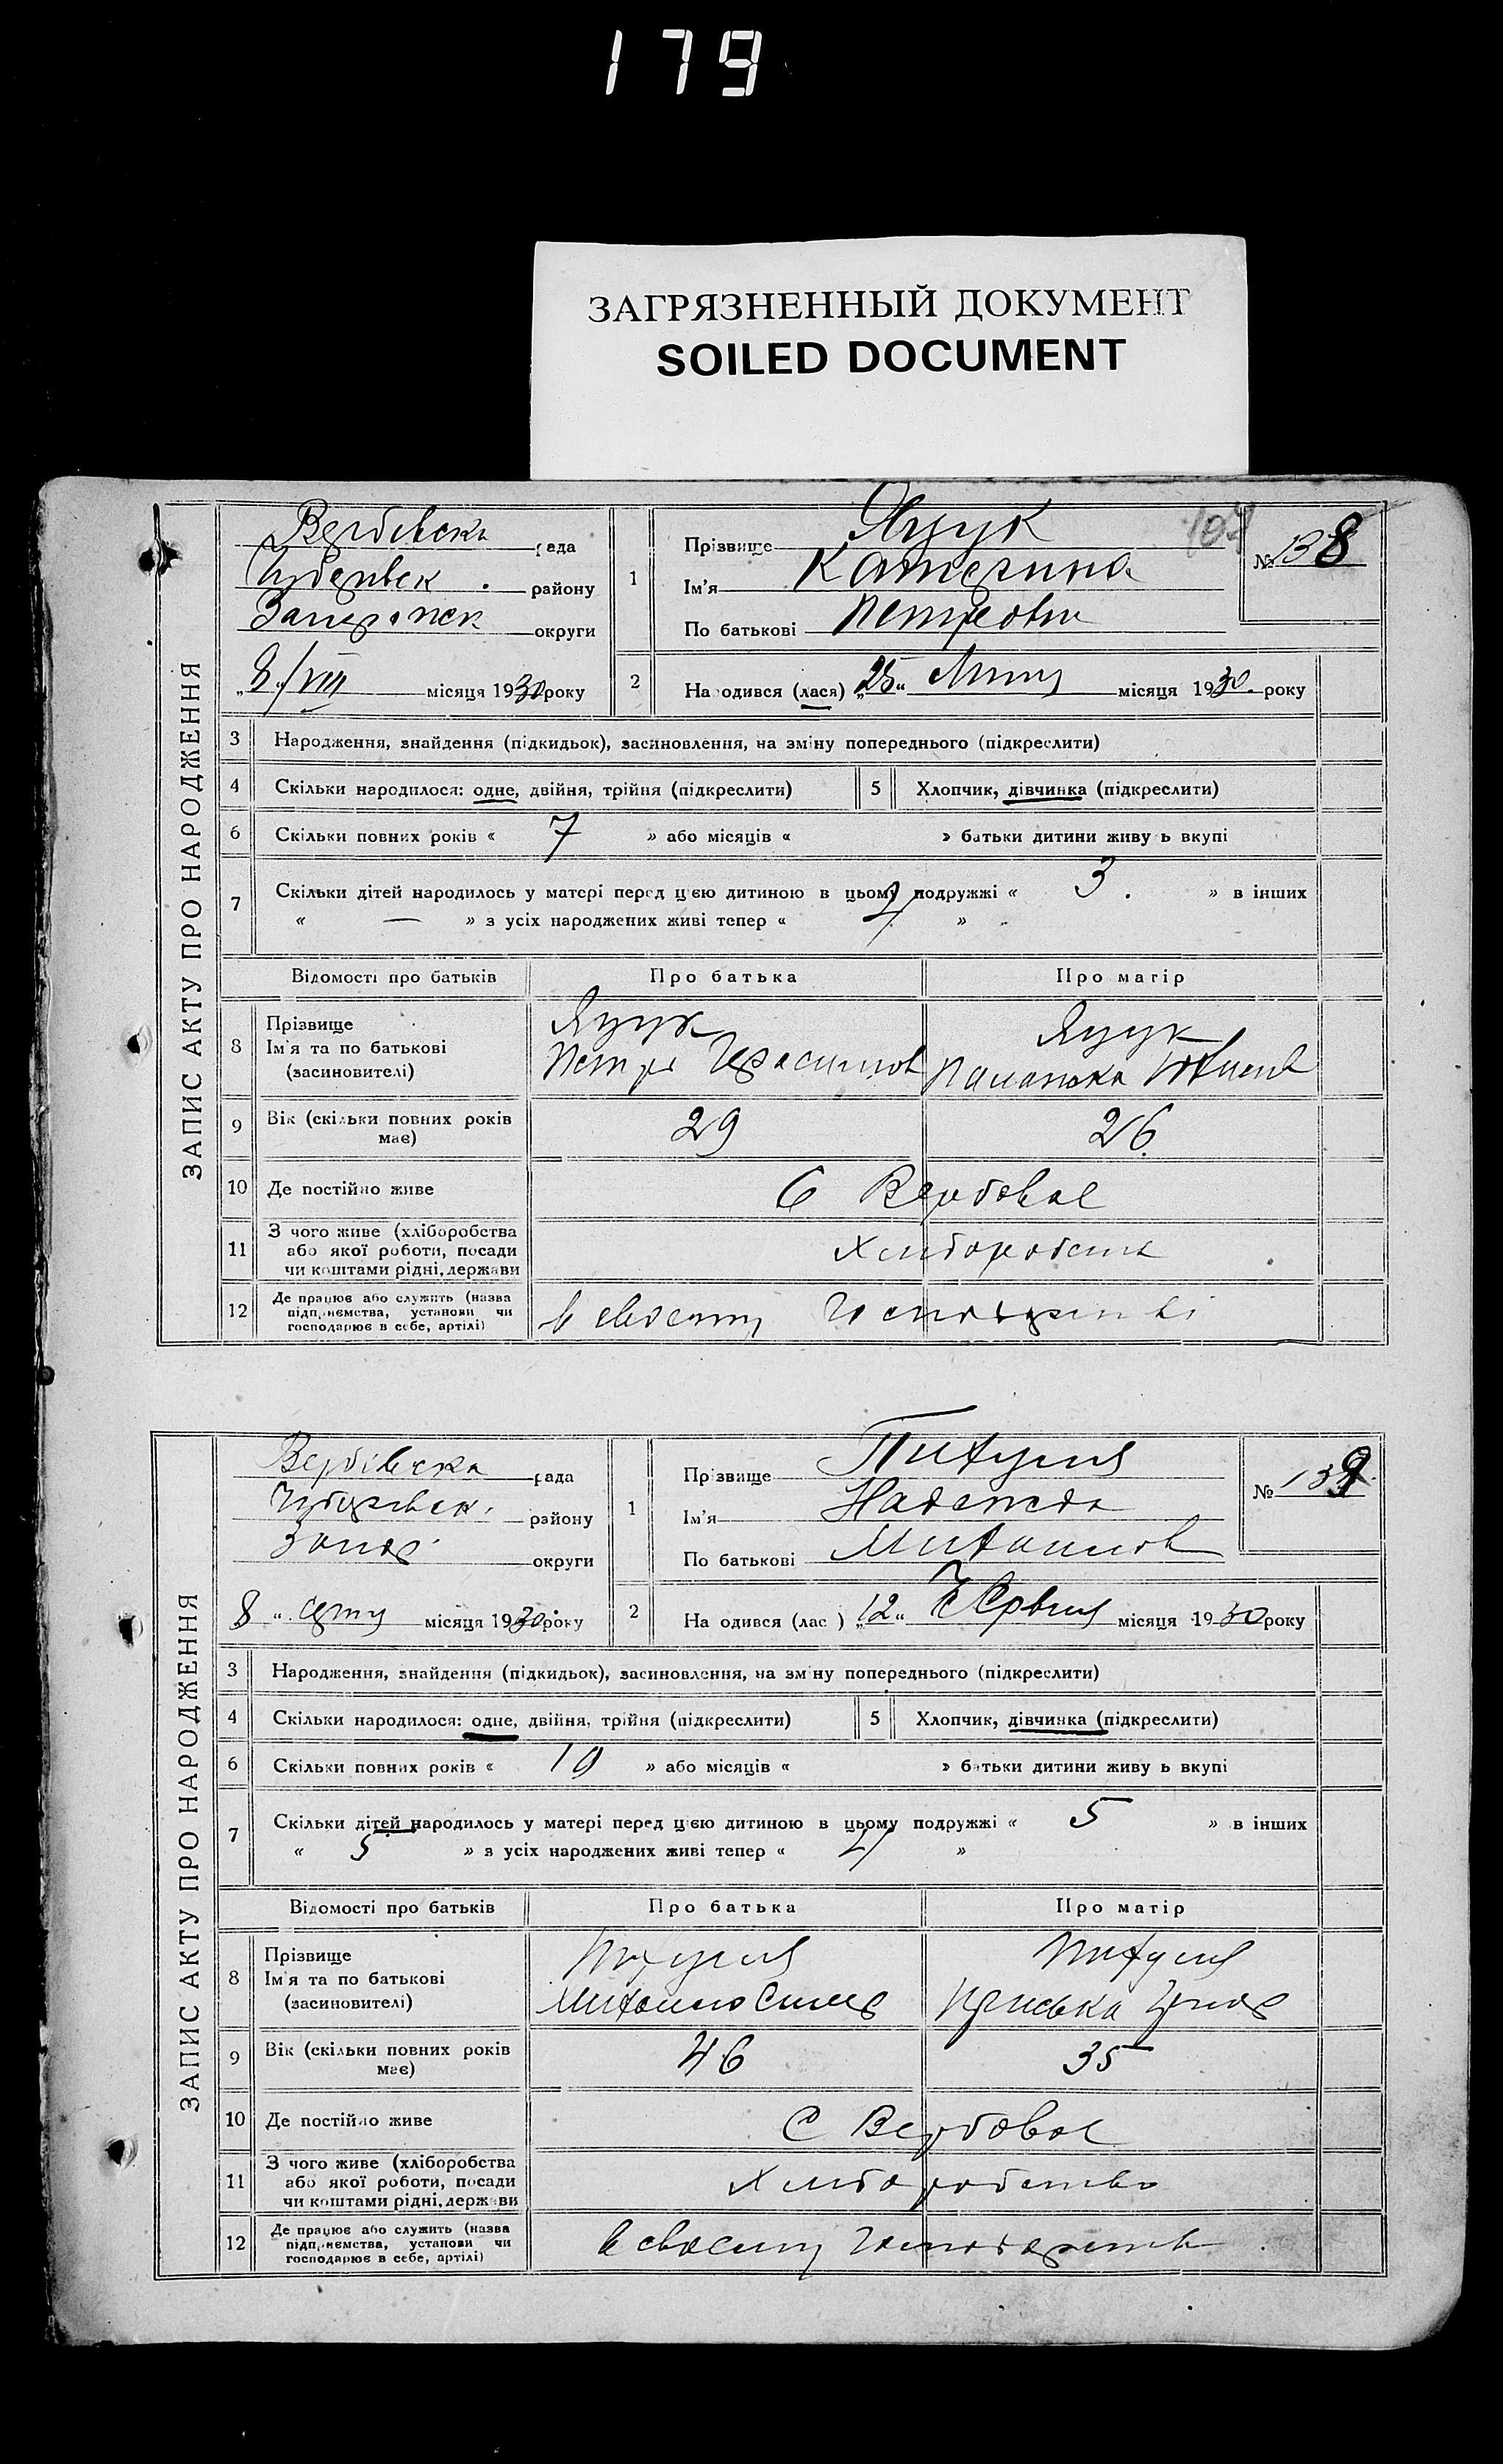 179
ЗАГРЯЗНЕННЫЙ ДОКУМЕНТ
SOILED DOCUMENT
ЗАПИС АКТУ ПРО НАРОДЖЕННЯ
рада
району
округи
8/VIII місяця 1930 року
1
Прізвище Яцук
Ім'я Катерина
По батькові Петровн
№ 138
2
Народився (лася) „25“ Липня місяця 1930 року
3 Народження, знайдення (підкидьок), засиновлення, на зміну попереднього (підкреслити)
4 Скільки народилося: одне, двійня, трійня (підкреслити)
5 Хлопчик, дівчинка (підкреслити)
6 Скільки повних років « 7 » або місяців « » батьки дитини живуть вкупі
7 Скільки дітей народилось у матері перед цією дитиною в цьому подружжі « 3. » в інших
« — » з усіх народжених живі тепер « »
Відомості про батьків Про батька Про матір
8 Прізвище
Ім'я та по батькові
(засиновителі)
Яцук
Петро Герасимов
Яцук
9 Вік (скільки повних років
має)
29
26
10 Де постійно живе
С Вербовое
11 З чого живе (хліборобства
або якої роботи, посади
чи коштами рідні, держави
Хлиборобств
12 Де працює або служить (назва
підприємства, установи чи
господарює в себе, артілі)
в своєму
ЗАПИС АКТУ ПРО НАРОДЖЕННЯ
Вербівська рада
району
Запор округи
8 „ серпн місяця 1930 року
1
Прізвище Пихуля
Ім'я Надежда
По батькові Михайлов
№ 139
2
Народився (лас ) „12“ Червня місяця 1930 року
3 Народження, знайдення (підкидьок), засиновлення, на зміну попереднього (підкреслити)
4 Скільки народилося: одне, двійня, трійня (підкреслити)
5 Хлопчик, дівчинка (підкреслити)
6 Скільки повних років « 19 » або місяців « » батьки дитини живуть вкупі
7 Скільки дітей народилось у матері перед цією дитиною в цьому подружжі « 5 » в інших
« 5 » з усіх народжених живі тепер « »
Відомості про батьків Про батька Про матір
8 Прізвище
Ім'я та по батькові
(засиновителі)
Пихуля
Михайло
Пихуля
9 Вік (скільки повних років
має)
46
35
10 Де постійно живе
С Вербовое
11 З чого живе (хліборобства
або якої роботи, посади
чи коштами рідні, держави
Хлиборобство
12 Де працює або служить (назва
підприємства, установи чи
господарює в себе, артілі)
в своєму